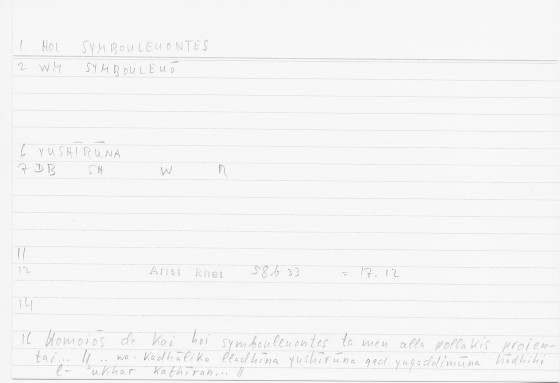 1 HOI SYMBOULEUONTES
2 WM SYMBOULEUŌ
6 YUSHĪRŪNA
7 DB SH W R
11
12 Arist Rhet 58b33 = 17.12
14
16 Homoiōs de kai hoi symbouleuontes ta men alla pollakis proien-
tai... // .. wa-kadhālika lladhīna yushīrūna qad yuqaddimūna hādhihi
l-'ukhar kathīran... //